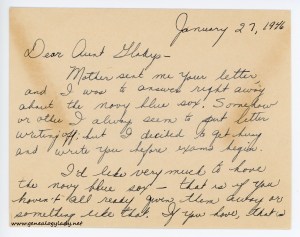 January 27, 1946
Dear Aunt Gladys-
Mother sent me your letter,
and I was to answer right away
about the navy blue sox. Somehow
or other I always seem to put letter
writing off, but I decided to get busy
and write you before exams begin.
I'd like very much to have
the navy blue sox - that is if you
haven't all ready given them away or
something like that. If you have, that is
www.genealogylady.net